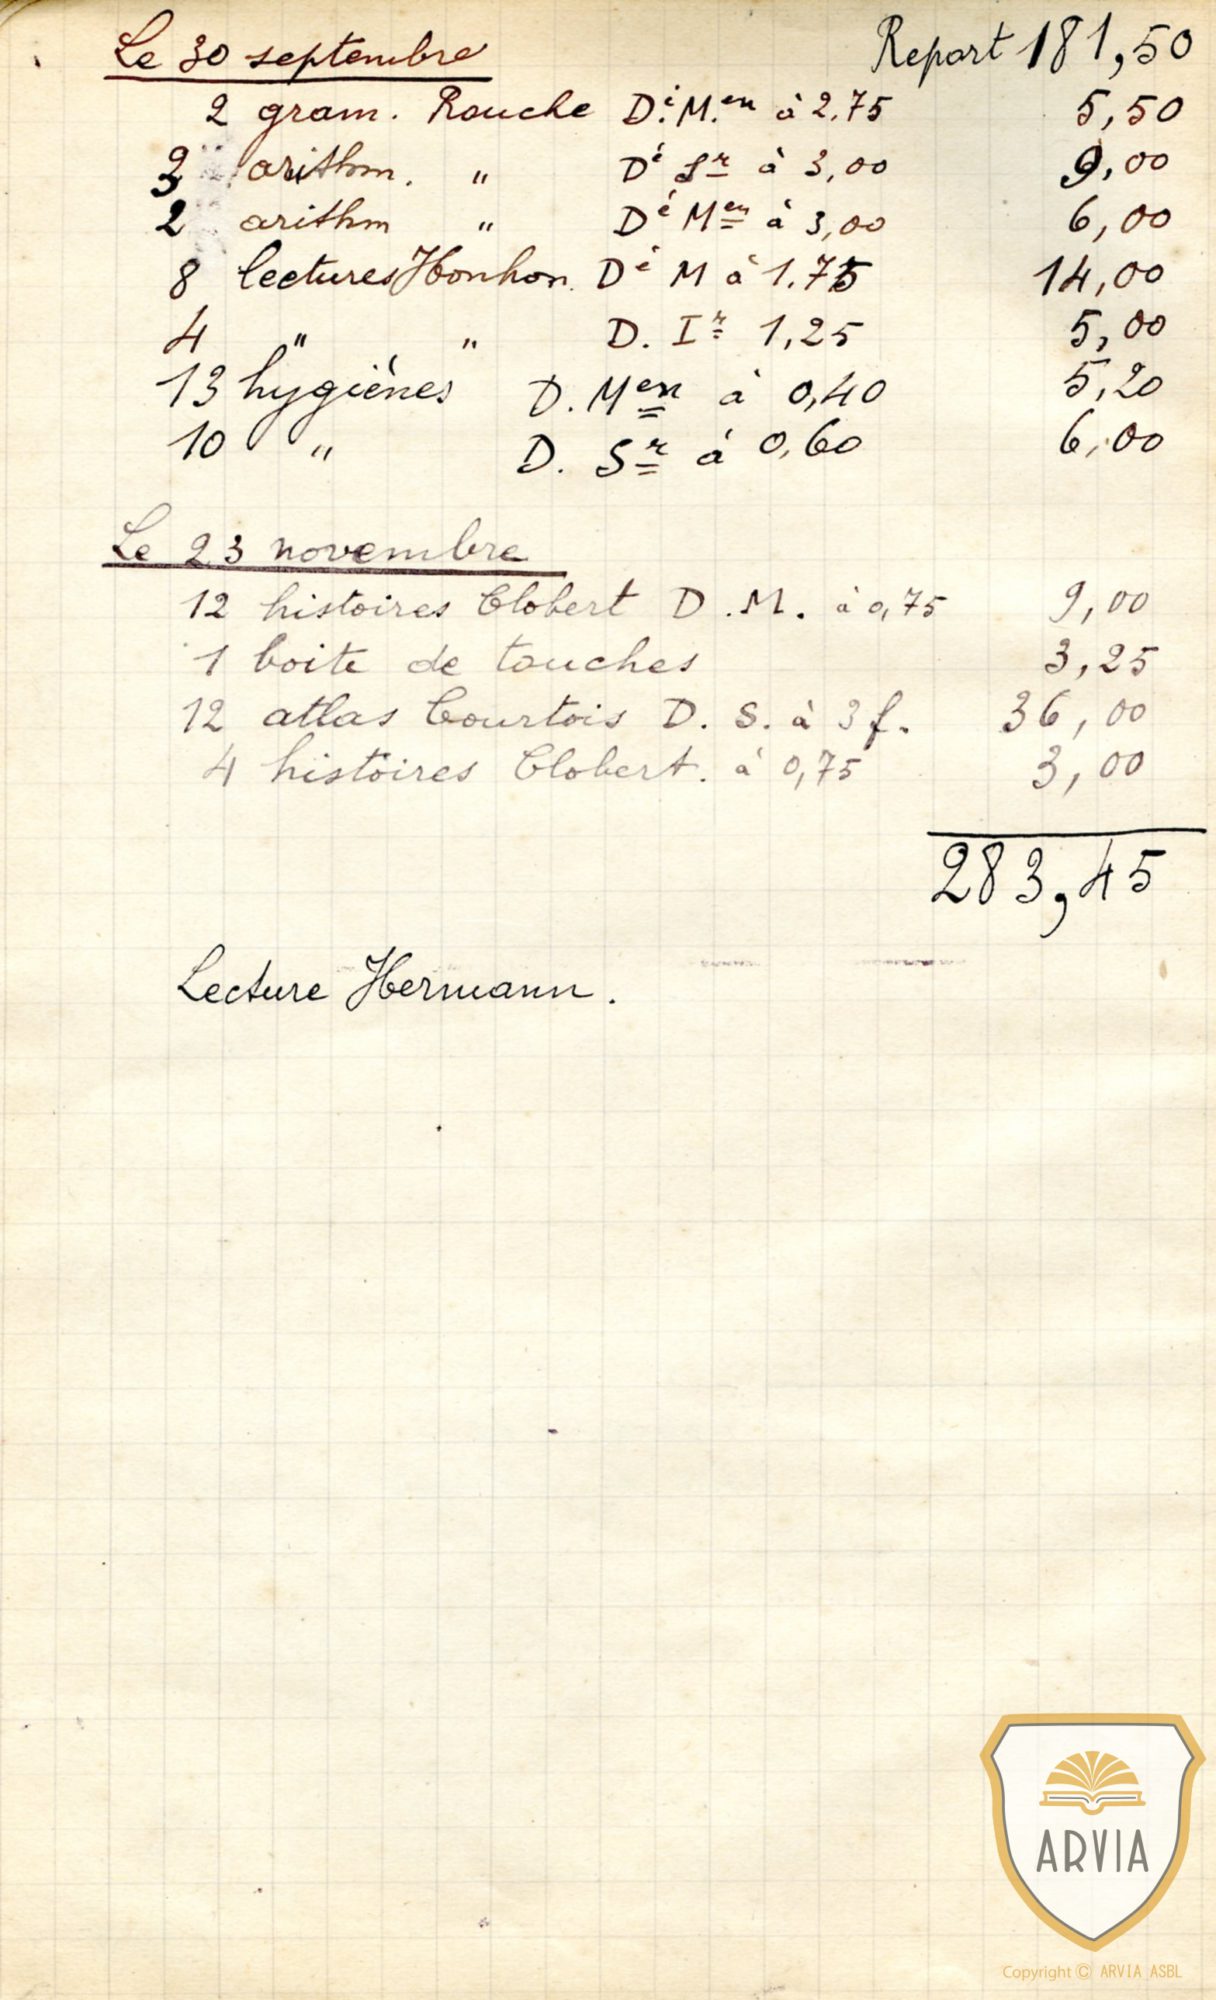 Le 30 septembre Report 181,50
2 gram. Rouche Dé M.en à 2.75 5,50
3 arithm. " Dé Sr à 3,00 9,00
2 arithm " Dé Men à 3,00 6,00
8 lectures Honhon. Dé M à 1.75 14,00
4 " " D. Ir 1,25 5,00
13 hygiènes D. Men à 0,40 5,20
10 " D. Sr à 0,60 6,00
Le 23 novembre
12 histoires Clobert D.M. à 0,75 9,00
1 boite de touches 3,25
12 atlas Courtois D. S. à 3 f. 36,00
4 histoires Clobert. à 0,75 3,00
283,45
Lecture Hermann.
ARVIA
Copyright © ARVIA ASBL